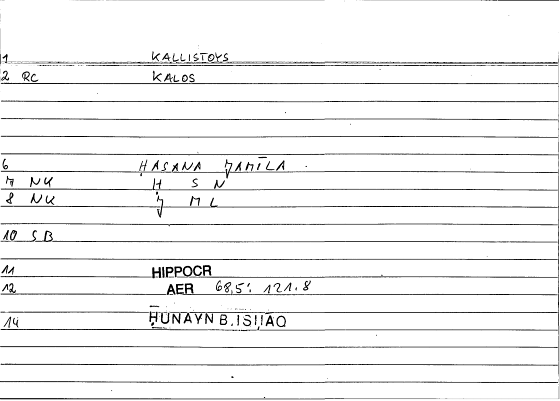 1 KALLISTOYS
2 RC KALOS
6 ḤASANA ǦAMĪLA
7 NK Ḥ S N
8 NK Ǧ M L
10 SB
11 HIPPOCR
12 AER 68,5: 121.8
14 ḤUNAYN B.ISḤĀQ